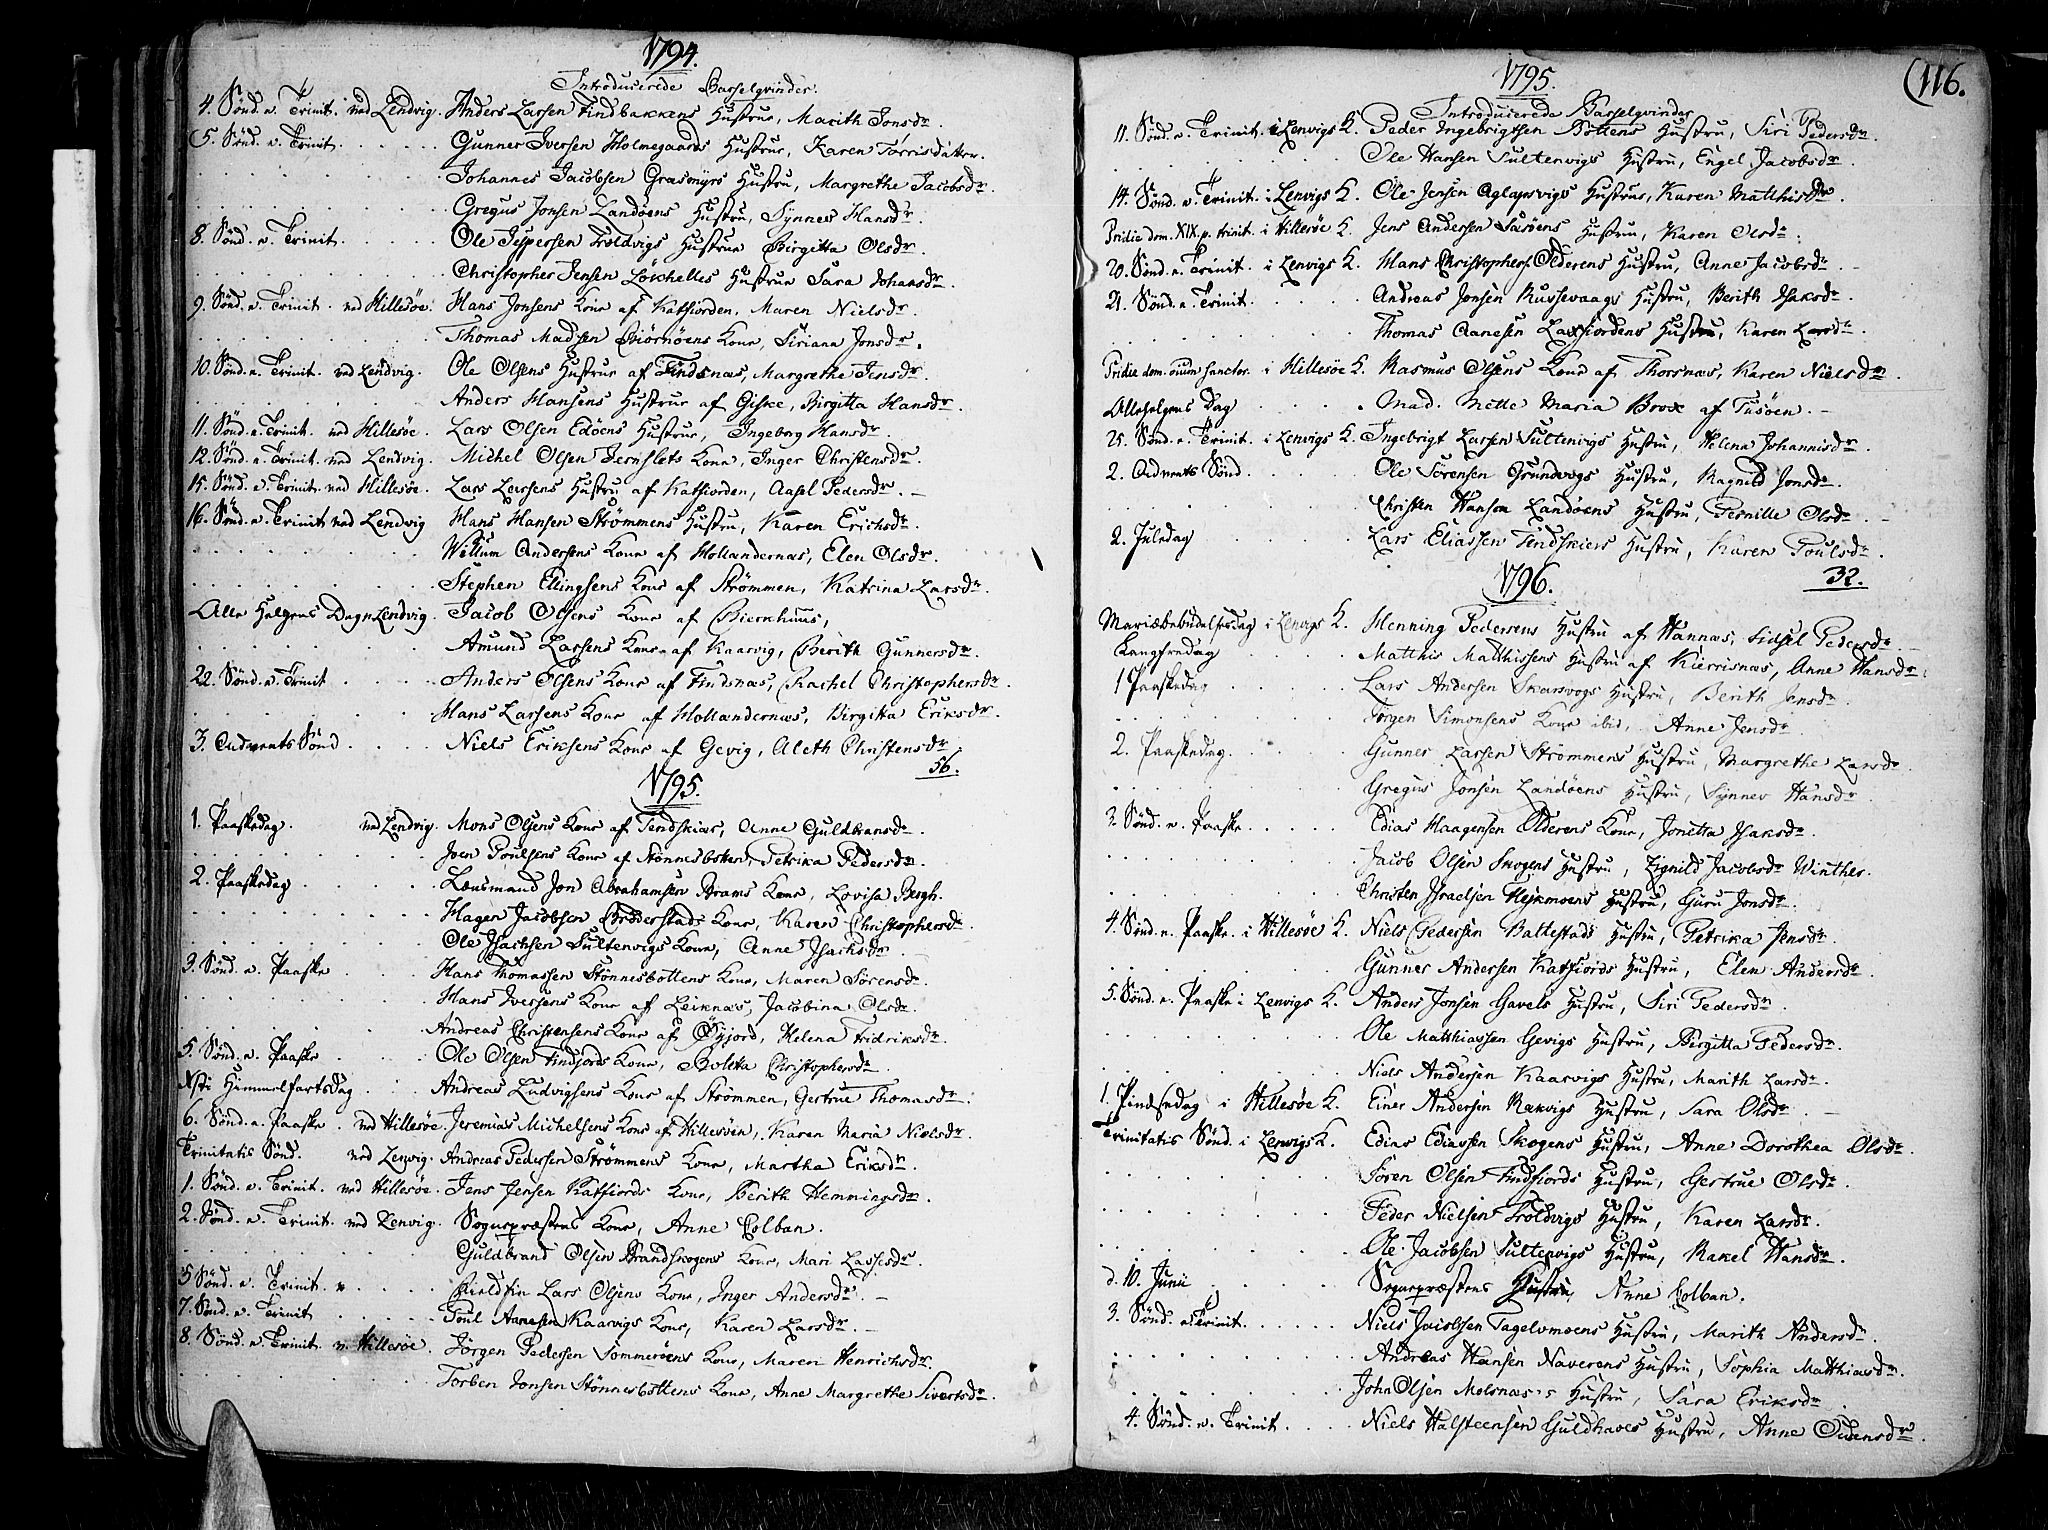 1794.
Introducerede Barselqvinder.
4. Sønd. e. Trinit. ved Lendvig. Anders Larsen Findbakkens Hustrue, Marith Jonsdr.
5. Sønd. e. Trinit. Gunner Iversen Holmegaards Hustrue, Karen Torrisdatter.
Johannes Jacobsen Grasmyrs Hustru, Margrethe Jacobsdr.
Gregus Jonsen Landøens Hustru, Synnev Hansdr.
8. Sønd. e. Trinit. Ole Jespersen Troldvigs Hustrue Birgitta Olsdr.
Christopher Jensen Hustrue Sara Johansdr.
9. Sønd. e. Trinit. ved Hillesøe. Hans Jonsens Kone af Katfiorden, Maren Nielsdr.
Thomas Madsen Biørnøens Kone, Siriana Jonsdr.
10. Sønd. e. Trinit. ved Lendvig. Ole Olsens Hustrue af Findsnæs, Margrethe Jensdr.
Anders Hansens Hustrue af Giske, Birgitta Hansdr.
11. Sønd. e. Trinit. ved Hillesøe. Lars Olsen Edøens Hustrue, Ingeborg Hansdr.
12. Sønd. e. Trinit. ved Lendvig. Michel Olsen Jernslets Kone, Inger Christensdr.
15. Sønd. e. Trinit. ved Hillesøe. Lars Larsens Hustru af Katfiorden, Aasel Pedersdr.
16. Sønd. e. Trinit ved Lendvig Hans Hansen Strømmens Hustru, Karen Erichsdr.
Willum Andersens Kone af Hollændernæs, Elen Olsdr.
Stephen Ellingsens Kone af Strømmen, Katrina Larsdr.
Alle Helgens Dag v. Lendvig. Jacob Olsens Kone af
Amund Larsens Kone af Kaarvig, Berith Gunnersdr.
22. Sønd. e. Trinit Anders Olsens Kone af Findsnæs, Rachel Christophersdr.
Hans Larsens Kone af Hollændernæs, Birgitta Eriksdr.
3. Advents Sønd. Niels Eriksens Kone af Gevig, Aleth Christensdr.
56.
1795.
1. Paaskedag. ved Lendvig. Mons Olsens Kone af Tendskiær, Anne Guldbransdr.
Joen Poulsens Kone af Stønnesbotten, Petrika Pedersdr.
2. Paaskedag Lensmand Jon Abrahamsen Brams Kone, Lovisa Bergh.
Hagen Jacobsen Kone, Karen Christophersdr.
Ole Isachsen Sultenvigs Kone, Anne Isachsdr.
3. Sønd. e. Paaske Hans Thomassen Stønnesbottens Kone, Maren Sørensdr.
Hans Iversens Kone af Leiknæs, Jacobina Olsdr.
Andreas Christensens Kone af Øyjord, Helena Fridriksdr.
5. Sønd. e. Paaske Ole Olsen Findfjords Kone, Boleta Christophersdr.
Xsti Himmelfartsdag Andreas Ludvigsens Kone af Strømmen, Gertrue Thomasdr.
6. Sønd. e. Paaske. ved Hillesøe. Jeremias Michelsens Kone af Hillesøen, Karen Maria Nielsdr.
Trinitatis Sønd. ved Lenvig. Andreas Pedersen Strømmens Kone, Martha Eriksdr.
1. Sønd. e. Trinit. ved Hillesøe. Jens Jensen Katfiords Kone, Berith Hemmingsdr.
2. Sønd. e. Trinit. ved Lenvig. Sognepræstens Kone, Anne Colban.
Guldbrand Olsen Brandskogens Kone, Mari Larsdr.
5 Sønd. e. Trinit. Lars Olsens Kone, Inger Andersdr.
7. Sønd. e. Trinit Poul Aanesen Kaarvigs Kone, Karen Larsdr.
8. Sønd. e. Trinit. v. Hillesøe. Jørgen Pedersen Sommerøens Kone, Maren Henrichsdr.
Torben Jonsen Stønnesbottens Kone, Anne Margrethe Sivertsdr.
(116.
1795.
Introducerede Barselqvinder
11. Sønd. e. Trinit. i Lenvigs K. Peder Ingebrigtsen Bottens Hustru, Siri Pedersdr.
Ole Hansen Sultenvigs Hustru, Engel Jacobsdr.
14. Sønd. e. Trinit. i Lenvigs K. Ole Jensen Aglapsvigs Hustrue, Karen Matthisdr.
Pridie dom. XIX. p. trinit. i Hillesøe K. Jens Andersen Hustru, Karen Olsdr.
20. Sønd. e. Trinit. i Lenvigs K. Hans Christophers. Olderens Hustru, Anne Jacobsdr.
21. Sønd. e. Trinit. Andreas Jonsen Russevaags Hustru, Berith Isaksdr.
Thomas Aanesen Laxfiordens Hustru, Karen Larsdr.
Pridie dom. oium sanctor. i Hillesøe K. Rasmus Olsens Kone af Thorsnæs, Karen Nielsdr.
Allehelgens Dag Mad. Mette Maria Brox af Tusøen.
25. Sønd. e. Trinit. i Lenvigs K. Ingebrigt Larsen Sultenvigs Hustru, Helena Johannisdr.
2. Advents Sønd. Ole Sørensen Grundvogs Hustru, Magnild Jonsdr.
Christen Hansen Landøens Hustru, Pernille Olsdr.
2. Juledag Lars Eliassen Tendskiers Hustru, Karen Poulsdr.
32.
1796.
Mariæbebudelsesdag i Lenvigs K. Henning Pedersens Hustru af Vannæs, Sidsel Pedersdr.
Langfredag Matthis Matthissens Hustru af Kierrisnæs, Anne Hansdr.
1 Paaskedag Lars Andersen Skarsvogs Hustru, Berith Jensdr.
Jørgen Simonsens Kone ibid, Anne Jensdr.
2. Paaskedag. Gunner Larsen Strømmens Hustru, Margrethe Larsdr.
Gregus Jonsen Landøens Hustru, Synnev Hansdr.
3. Sønd. e. Paaske. Edias Haagensen Olderens Kone, Jonetta Isaksdr.
Jacob Olsen Skogens Hustru, Zignild Jacobsdr Winther.
Christen Israelsen Hustru, Guru Jonsdr.
4. Sønd. e. Paaske. i Hillesøe K. Niels Pedersen Baltestads Hustru, Petrika Jensdr.
Gunner Andersen Katfiords Hustru, Elen Andersdr.
5. Sønd. e. Paaske i Lenvigs K. Anders Jonsen Gavels Hustru, Siri Pedersdr.
Ole Matthiassen Gevigs Hustru, Birgitta Pedersdr.
Niels Andersen Kaarvigs Hustru, Marith Larsdr.
1. Pindsedag i Hillesøe K. Einer Andersen Rækvigs Hustru, Sara Olsdr.
Trinitatis Sønd. i Lenvigs K. Edias Ediassen Skogens Hustru, Anne Dorothea Olsdr.
Søren Olsen Findfiords Hustru, Gertrue Olsdr.
Peder Nielsen Troldvigs Hustru, Karen Larsdr.
Ole Jacobsen Sultenvigs Hustru, Rakel Hansdr.
d. 10. Junii Sognepræstens Hustru Anne Colban.
3. Sønd. e. Trinit. Niels Jacobsen Tagelvmoens Hustru, Marith Andersdr.
Andreas Hansen Naverens Hustru, Sophia Matthiasdr.
John Olsen Molsnæs's Hustru, Sara Eriksdr.
4. Sønd. e. Trinit. Niels Halsteensen Guldhaves Hustru, Anne Odensdr.